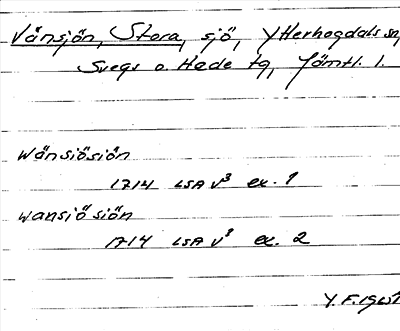 Vänsjön, Stora, sjö, Ytterhogdals sn,
Svegs o. Hede tg, Jämtl. l.
Wänsiösiön
1714 LSA V³ ex. 1
wansiö siön
1714 LSA V³ ex. 2
Y. F.